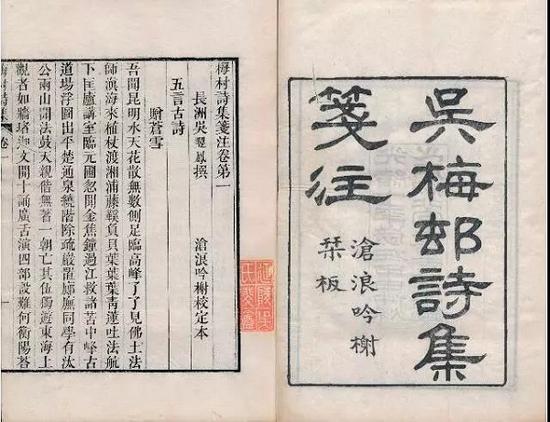 吳梅邨詩集
箋注
滄浪吟榭
栞板
梅村詩集箋注卷第一
長洲吳翌鳳撰 滄浪吟榭校定本
五言古詩
贈蒼雪
吾聞昆明水天花散無數側足臨高峰了了見佛土法
師滇海來植杖渡湘浦藤鞵負貝葉葉葉青蓮吐法航
下匡廬講室臨元圃忽聞金焦鐘過江救諸苦中峰古
道場浮圖出平楚通泉繞階除疏巖置廊廡同學有汶
公兩山開法鼓天親偕無著一朝亡其伍獨遊東海上
觀者如牆堵迦文開十誦廣舌演四部設難何衡陽答
梅村詩集 卷一